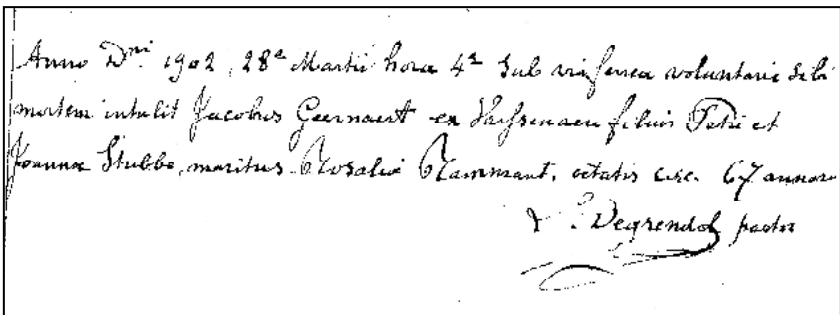 Anno Dni 1902, 28a Martii hora 4a sub via ferrea voluntarie sibi
mortem intulit Jacobus Geernaert ex Vlissenaeu filius Petri et
Joannæ Stubbe, maritus Rosaliæ Rammant, ætatis circ. 67 annor
Degrendel pastor